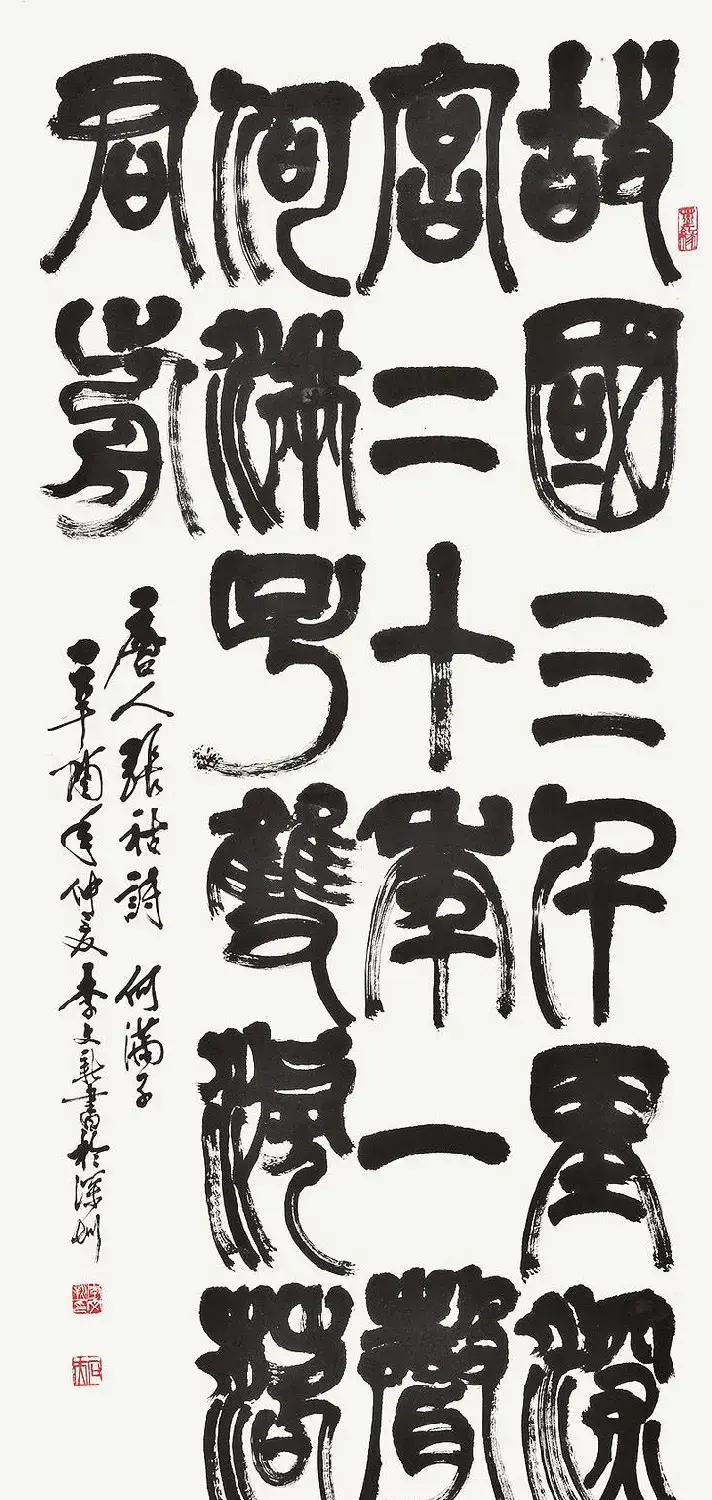 故國三千里深
宮二十年一聲
何滿子雙淚落
君前
唐人張祜詩 何滿子
辛酉年仲夏李文書於深圳